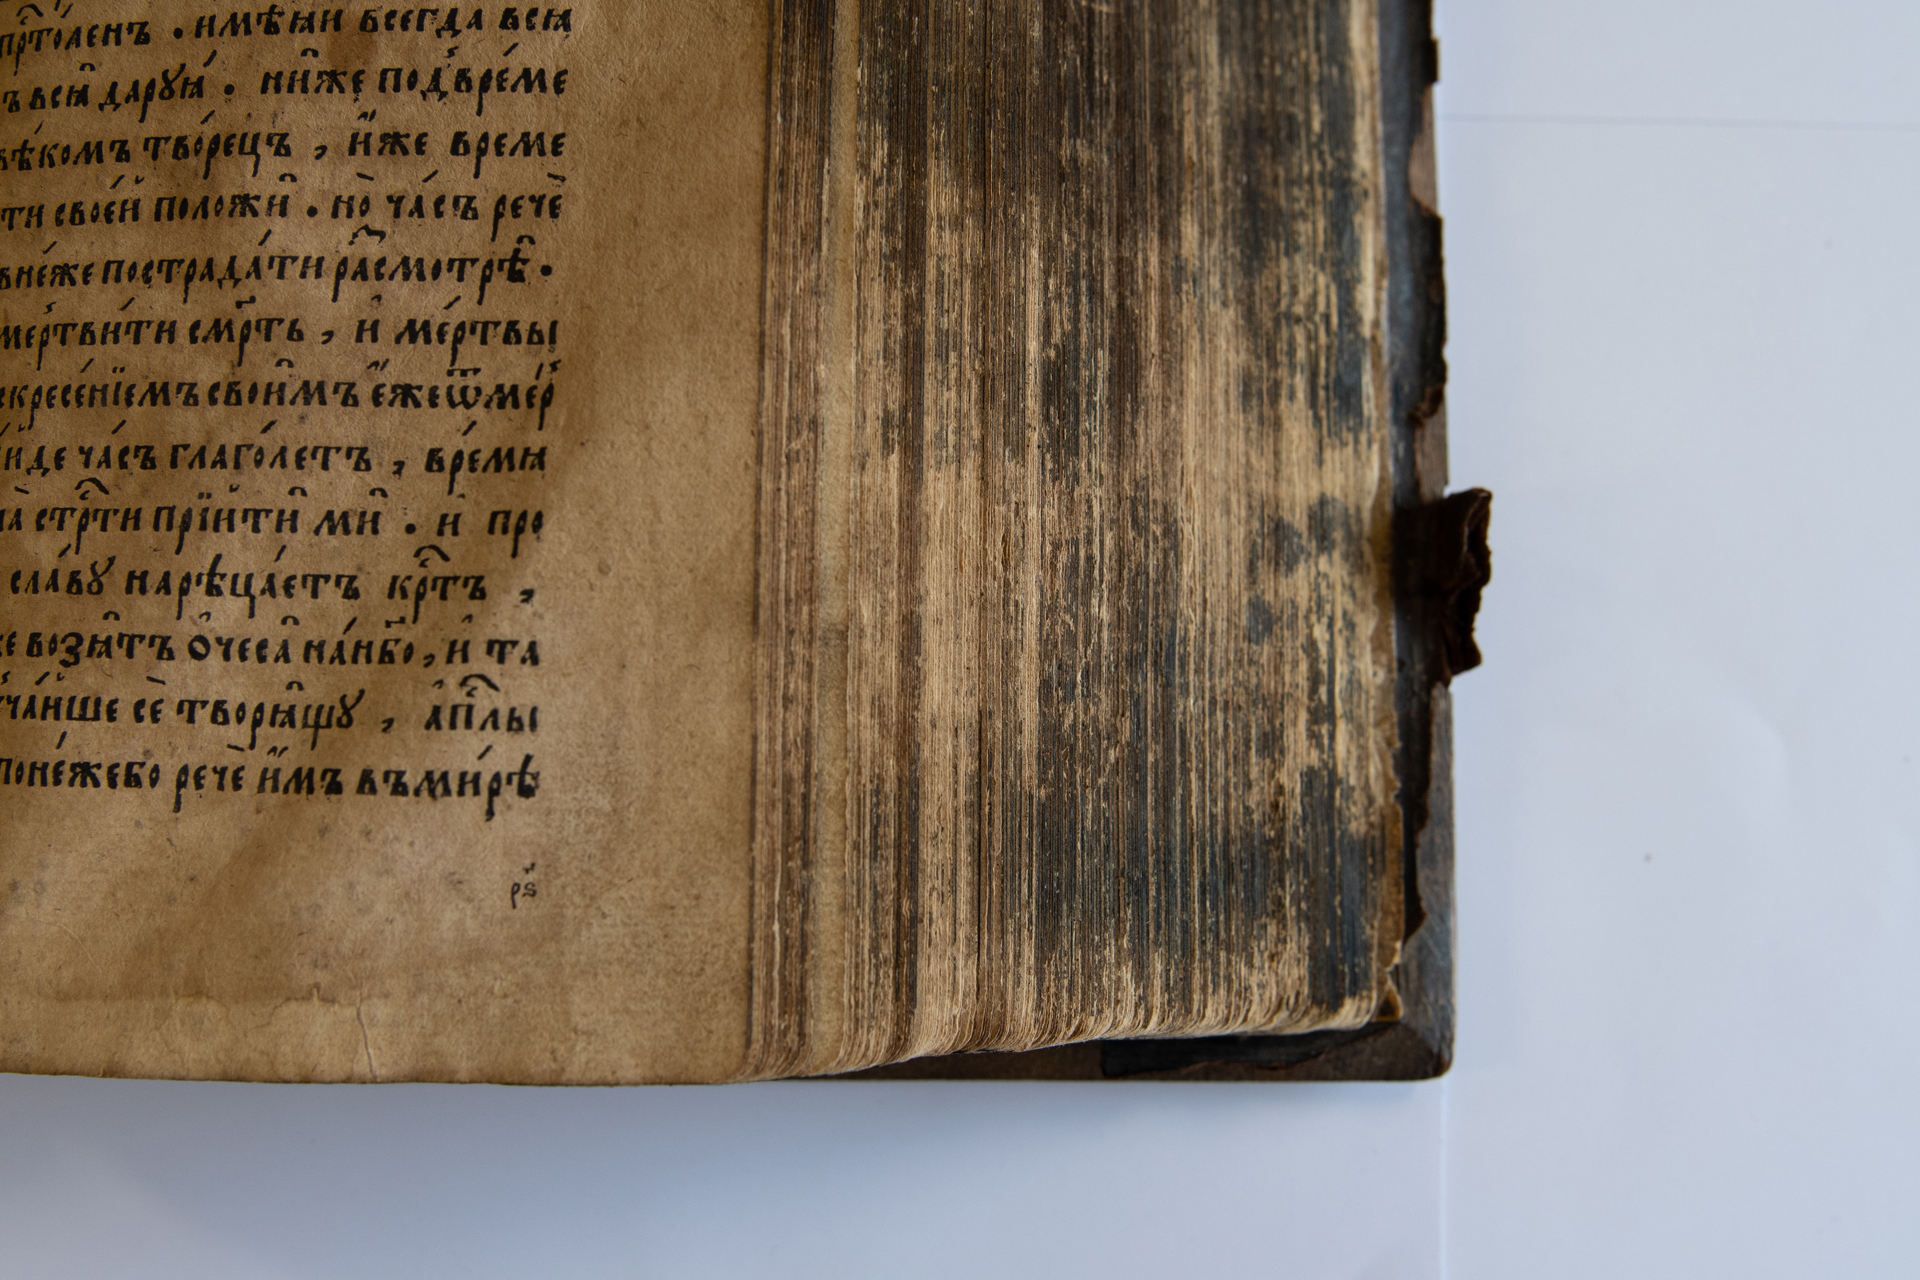 прⷭ҇то́ленъ . имѣ́ѧй всегда̀ всѧ̀
ъ всѧ̑ дарꙋѧ́ . ни̑же под̾вре́ме
вѣ́комъ тво́рецъ , и҆́же време
ти свое́й положи̑ . но̀ ча́съ речѐ
внѐже пострада́ти ра̑смотрѣ̑ .
мер́твити смр҃ть , и҆ ме́ртвы
скресе́нїемъ свои̑мъ є҆́же ѿ мер́
и́де ча́съ глаго́летъ , вре́мѧ
на̀ стрⷭ҇ти прїи̑ти ми̑ . и про
сла́вꙋ нарѣца́етъ крⷭ҇тъ ,
же возѧ̑тъ о҆чеса̑ на́нб҃о , и҆ та
ча́йше сѐ творѧ̑щꙋ , а҆пⷭ҇лы
поне́жебо речѐ и҆́мъ въми́рѣ
рѕ҃